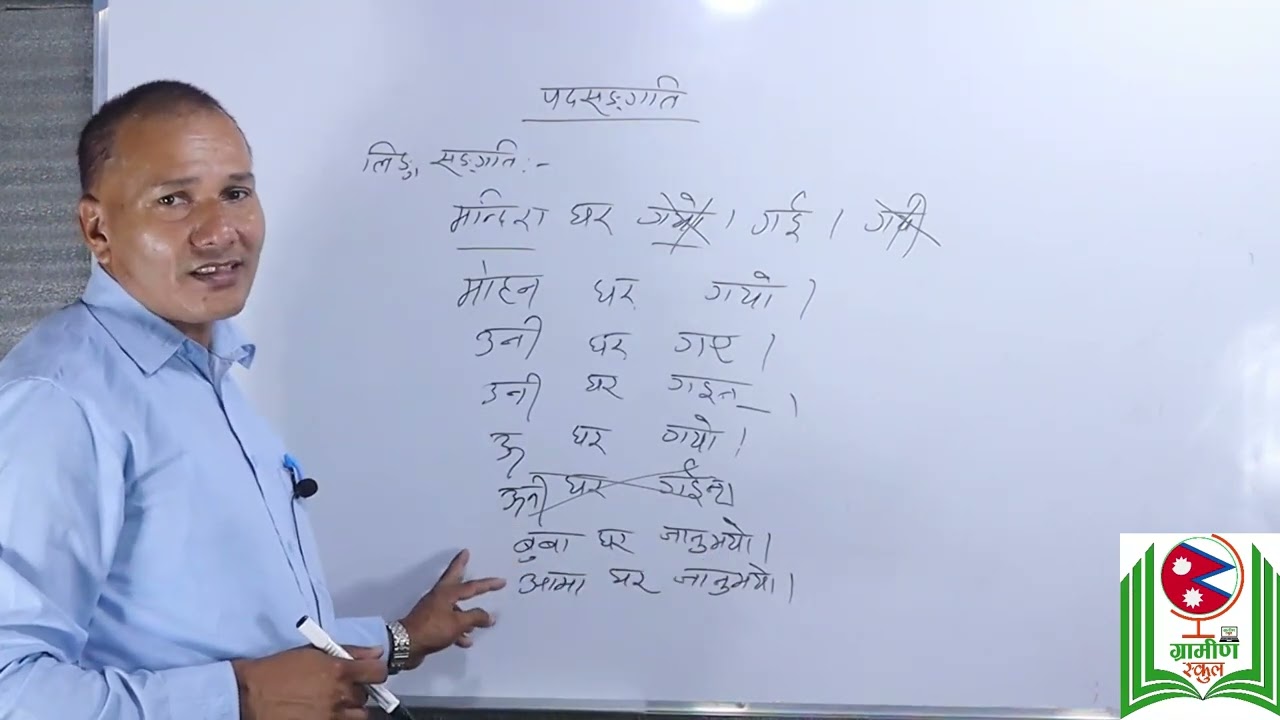 पदसङ्गति
लिङ्ग सङ्गति :-
मन्दिरा घर गयो । गई । गयी
मोहन घर गयो ।
उनी घर गए ।
उनी घर गइन् ।
ऊ घर गयो ।
ऊनी घर गईन् ।
बुबा घर जानुभयो ।
आमा घर जानुभयो ।
ग्रामीण
स्कुल